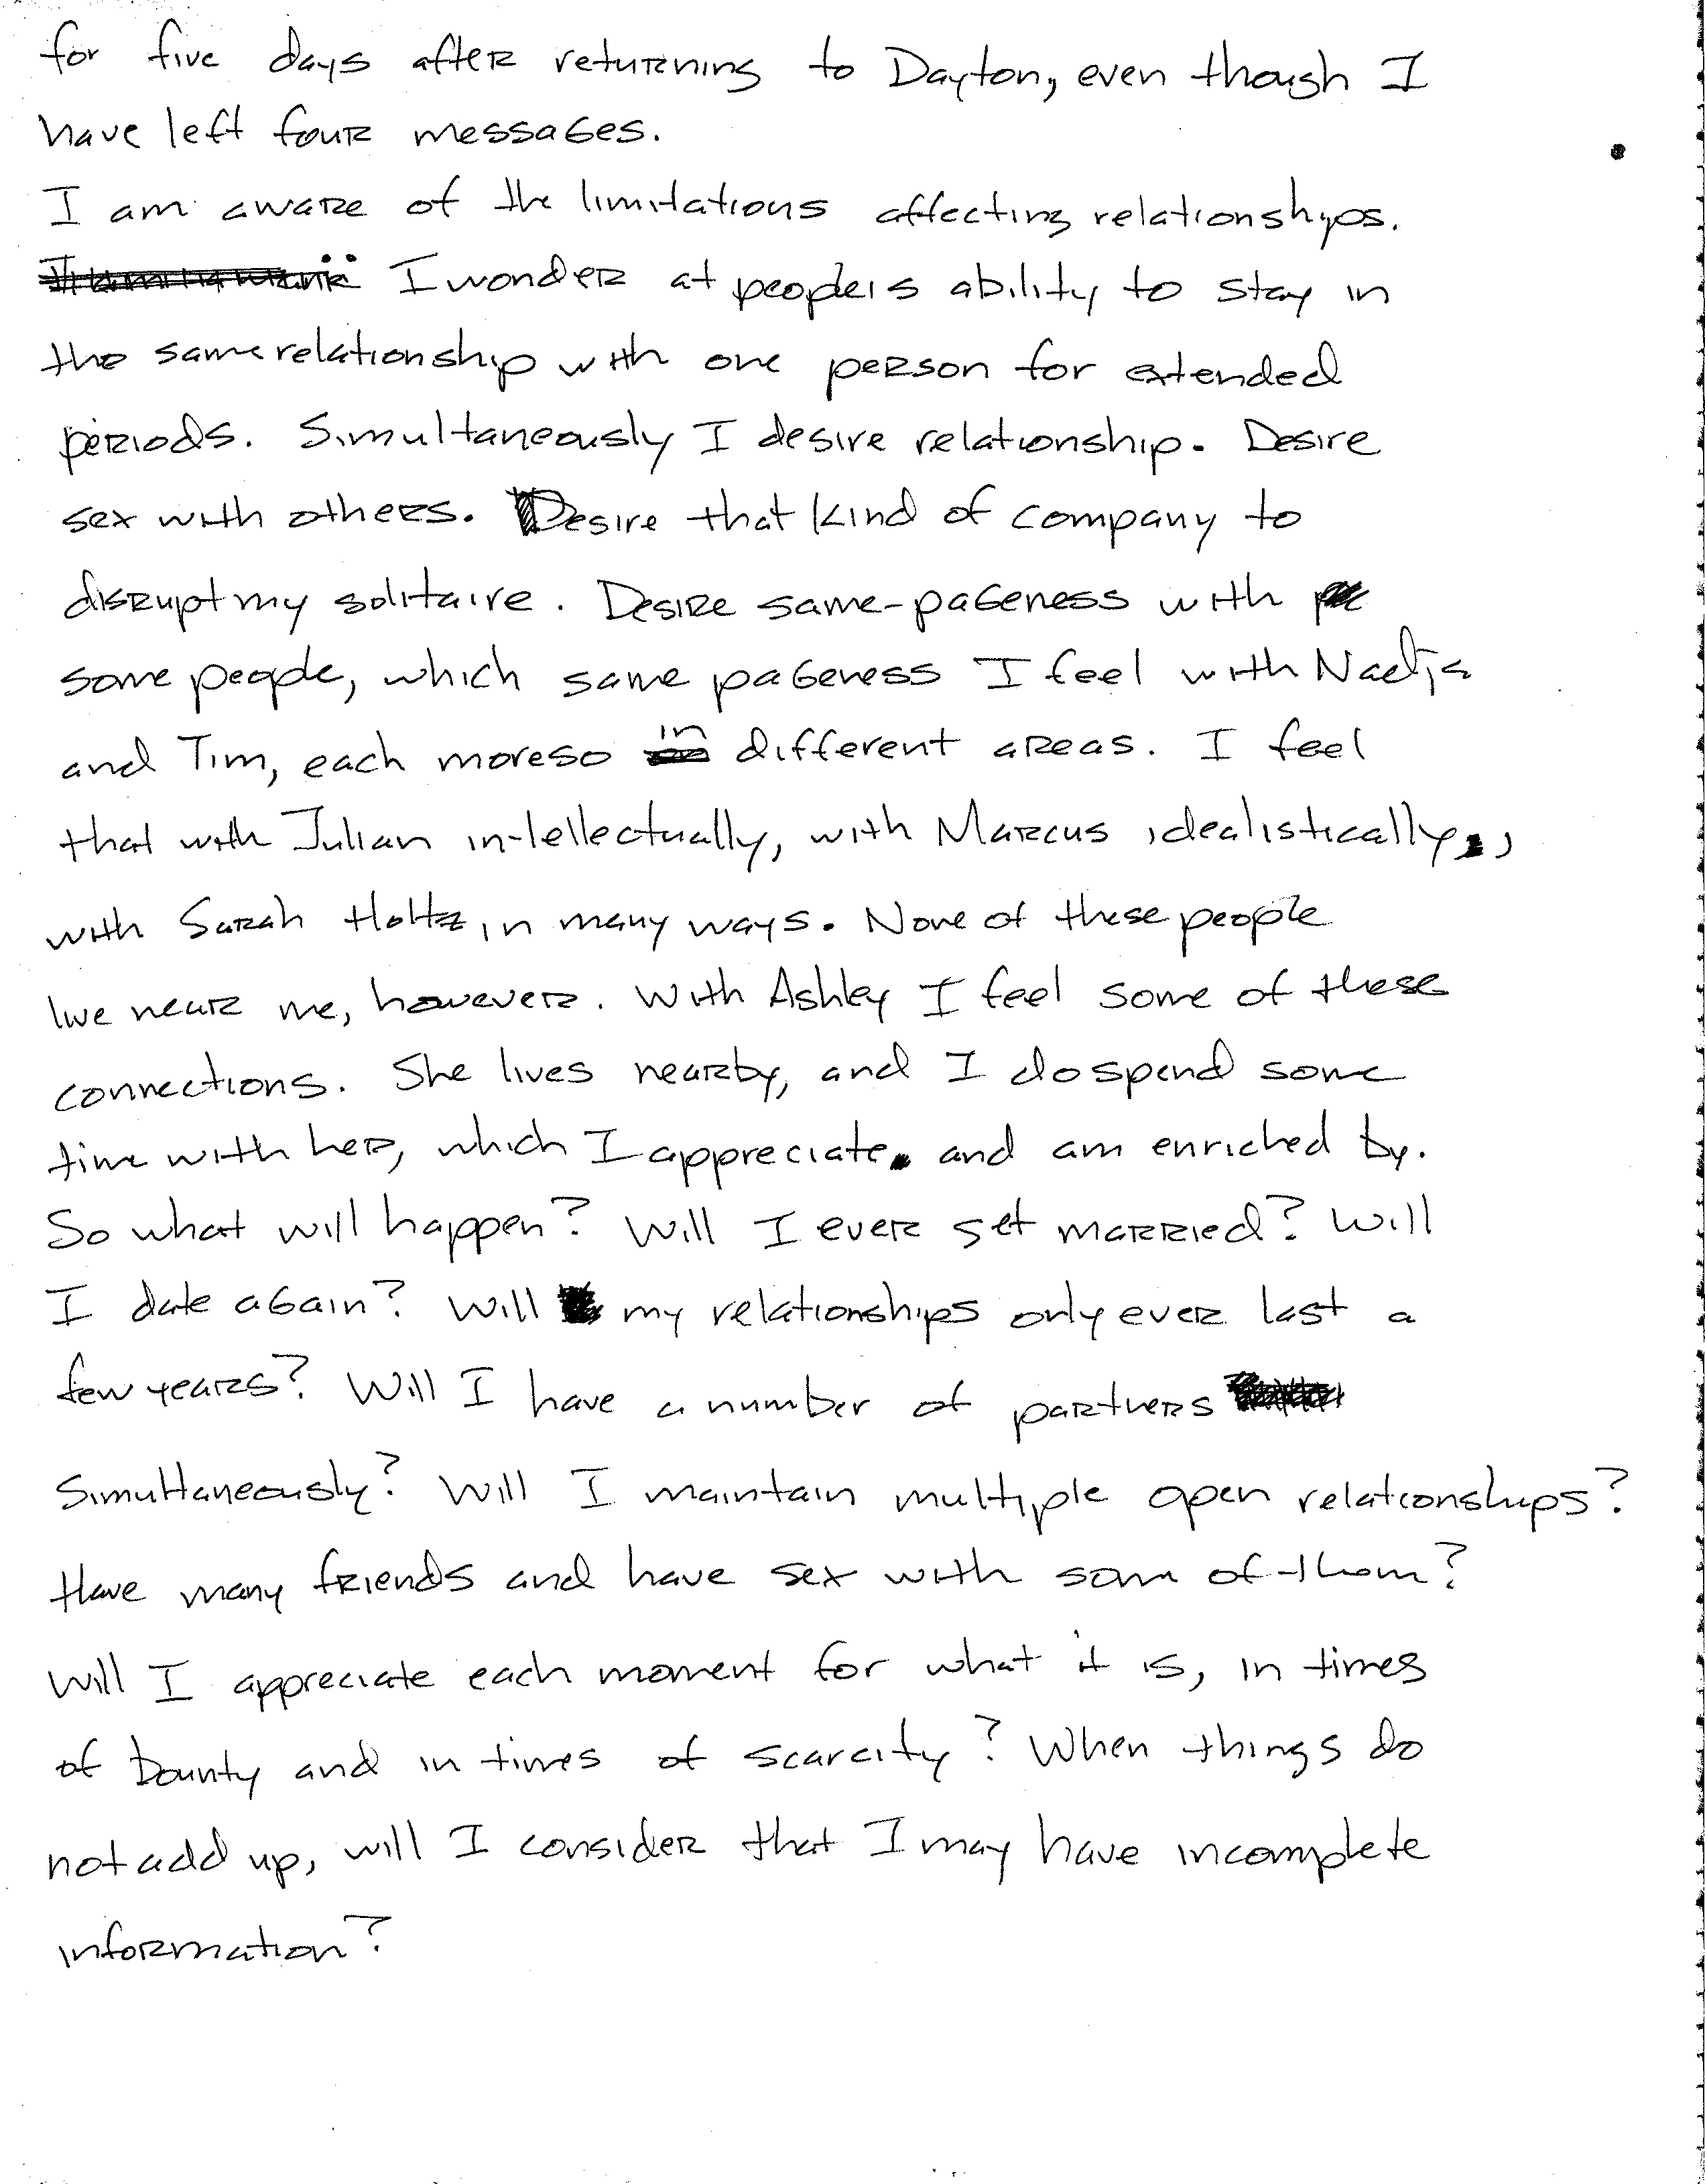 for five days after returning to Dayton, even though I
have left four messages.
I am aware of the limitations affecting relationships.
I wonder at people's ability to stay in
the same relationship with one person for extended
periods. Simultaneously I desire relationship. Desire
sex with others. Desire that kind of company to
disrupt my solitaire. Desire same-pageness with
some people, which same pageness I feel with Nadja
and Tim, each moreso in different areas. I feel
that with Julian intellectually, with Marcus idealistically,
with Sarah Holtz in many ways. None of these people
live near me, however. With Ashley I feel some of these
connections. She lives nearby, and I do spend some
time with her, which I appreciate and am enriched by.
So what will happen? Will I ever get married? Will
I date again? Will my relationships only ever last a
few years? Will I have a number of partners
simultaneously? Will I maintain multiple open relationships?
Have many friends and have sex with some of them?
Will I appreciate each moment for what it is, in times
of bounty and in times of scarcity? When things do
not add up, will I consider that I may have incomplete
information?